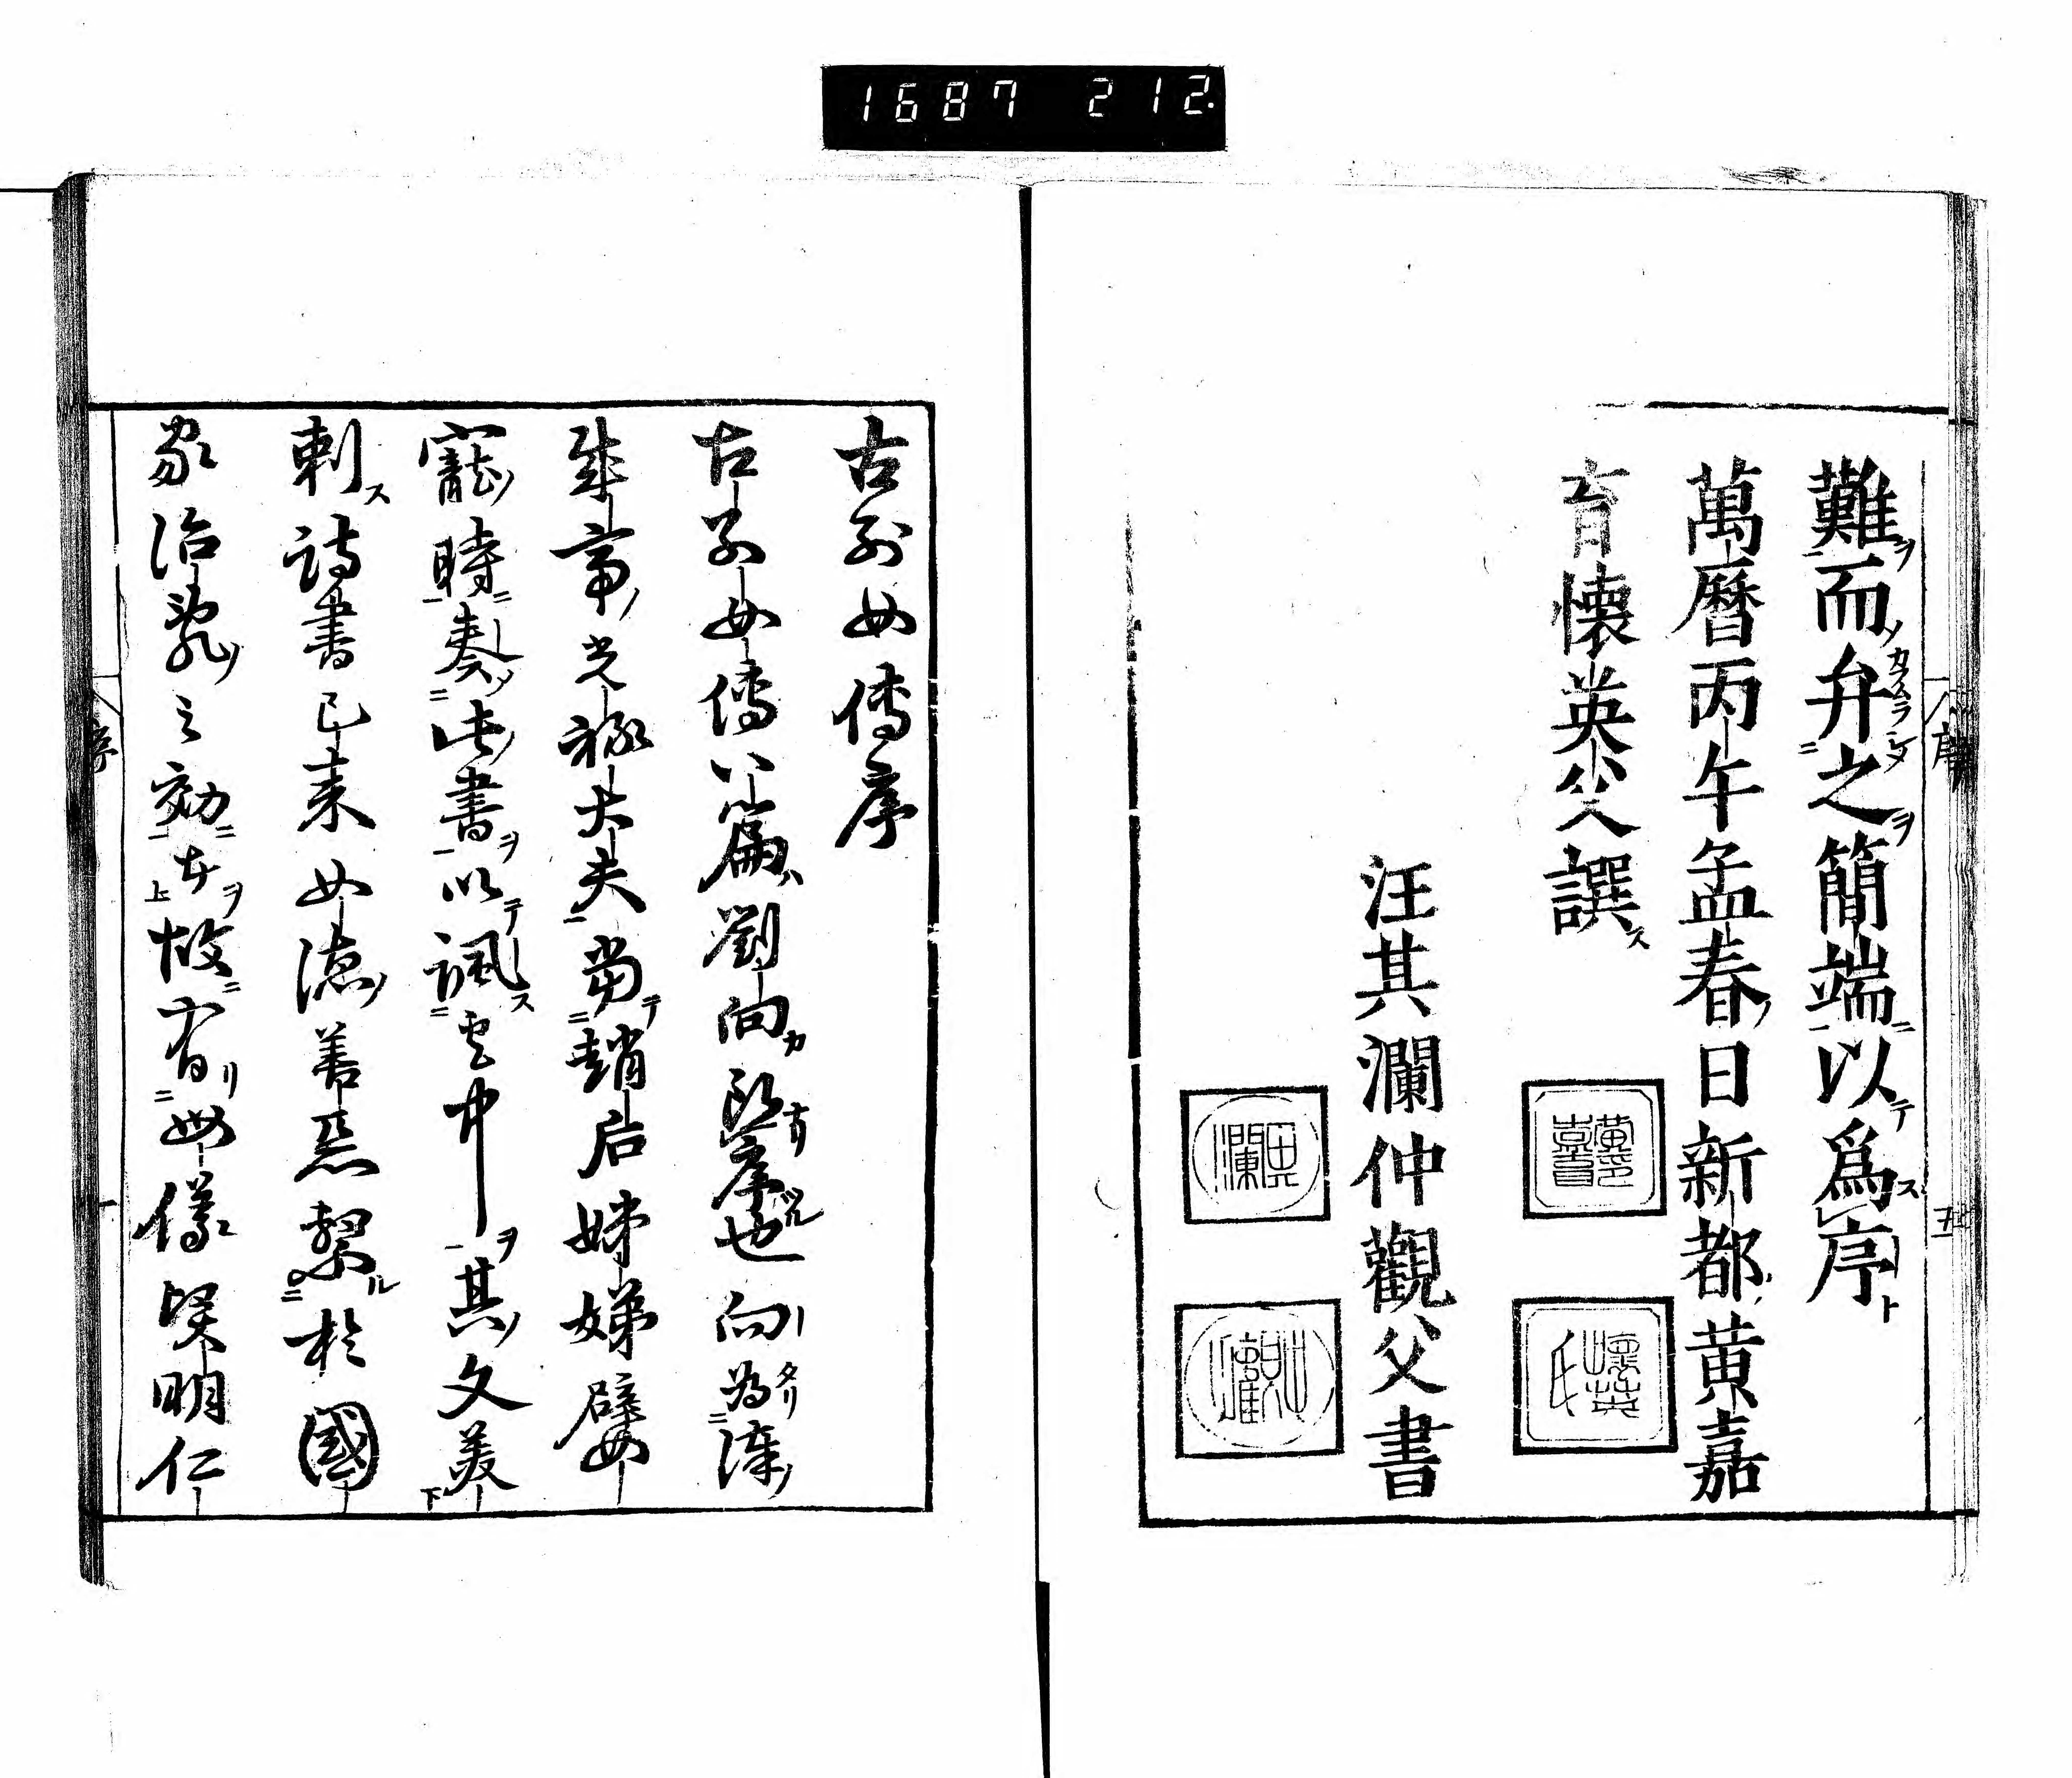 1687 212.
序 五
難而弁之簡端以爲序
萬曆丙午孟春日新都黄嘉
育懷英父譔
黄印嘉育
懷英氏
汪其瀾仲觀父書
其瀾
古列女傳序
古列女傳八篇劉向所序也向為漢
成帝光祿大夫當趙后姊娣嬖
寵時奏此書以諷宮中其文美
刺詩書已来女德善惡繫於國
家治亂之効者故有母儀賢明仁
序 一